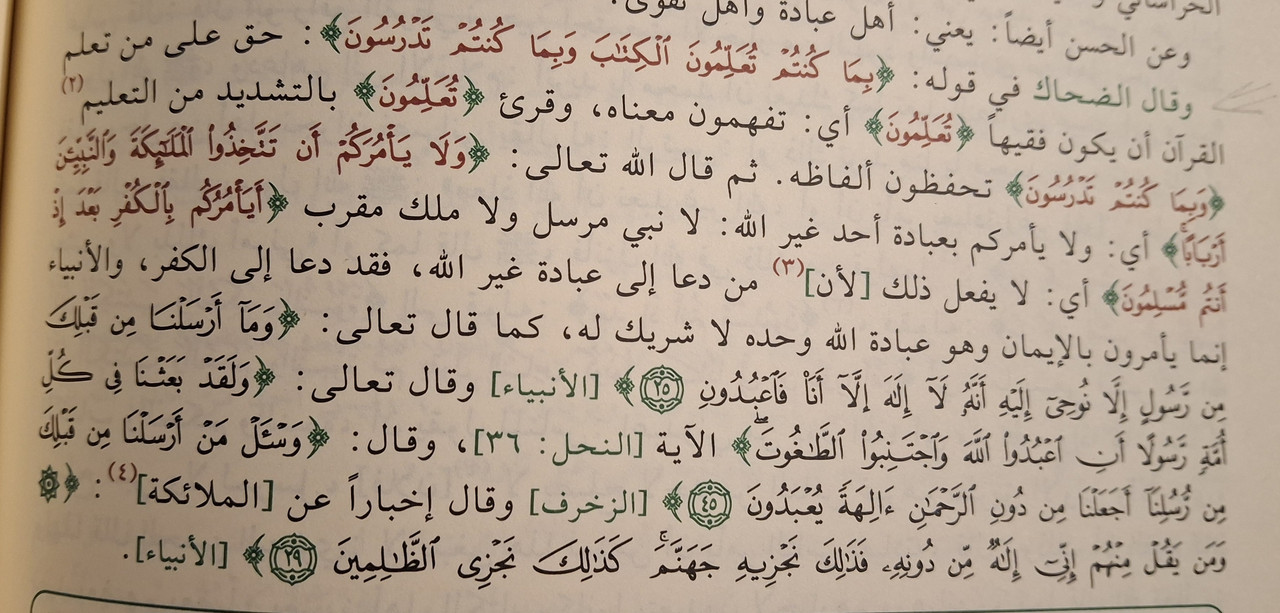 وعن الحسن أيضاً: يعني: أهل عبادة وأهل تقوى.
وقال الضحاك في قوله: ﴿بِمَا كُنتُمْ تُعَلِّمُونَ ٱلْكِتَٰبَ وَبِمَا كُنتُمْ تَدْرُسُونَ﴾: حق على من تعلم
القرآن أن يكون فقيهاً ﴿تُعَلِّمُونَ﴾ أي: تفهمون معناه، وقرئ ﴿تُعَلِّمُونَ﴾ بالتشديد من التعليم(٢)
﴿وَبِمَا كُنتُمْ تَدْرُسُونَ﴾ تحفظون ألفاظه. ثم قال الله تعالى: ﴿وَلَا يَأْمُرَكُمْ أَن تَتَّخِذُوا۟ ٱلْمَلَٰٓئِكَةَ وَٱلنَّبِيِّـۧنَ
أَرْبَابًا﴾ أي: ولا يأمركم بعبادة أحد غير الله: لا نبي مرسل ولا ملك مقرب ﴿أَيَأْمُرُكُم بِٱلْكُفْرِ بَعْدَ إِذْ
أَنتُم مُّسْلِمُونَ﴾ أي: لا يفعل ذلك [لأن](٣) من دعا إلى عبادة غير الله، فقد دعا إلى الكفر، والأنبياء
إنما يأمرون بالإيمان وهو عبادة الله وحده لا شريك له، كما قال تعالى: ﴿وَمَآ أَرْسَلْنَا مِن قَبْلِكَ
مِن رَّسُولٍ إِلَّا نُوحِىٓ إِلَيْهِ أَنَّهُۥ لَآ إِلَٰهَ إِلَّآ أَنَا۠ فَٱعْبُدُونِ ٢٥﴾ [الأنبياء] وقال تعالى: ﴿وَلَقَدْ بَعَثْنَا فِى كُلِّ
أُمَّةٍ رَّسُولًا أَنِ ٱعْبُدُوا۟ ٱللَّهَ وَٱجْتَنِبُوا۟ ٱلطَّٰغُوتَ﴾ الآية [النحل: ٣٦]، وقال: ﴿وَسْـَٔلْ مَنْ أَرْسَلْنَا مِن قَبْلِكَ
مِن رُّسُلِنَآ أَجَعَلْنَا مِن دُونِ ٱلرَّحْمَٰنِ ءَالِهَةً يُعْبَدُونَ ٤٥﴾ [الزخرف] وقال إخباراً عن [الملائكة](٤): ﴿۞
وَمَن يَقُلْ مِنْهُمْ إِنِّىٓ إِلَٰهٌ مِّن دُونِهِۦ فَذَٰلِكَ نَجْزِيهِ جَهَنَّمَ كَذَٰلِكَ نَجْزِى ٱلظَّٰلِمِينَ ٢٩﴾ [الأنبياء].